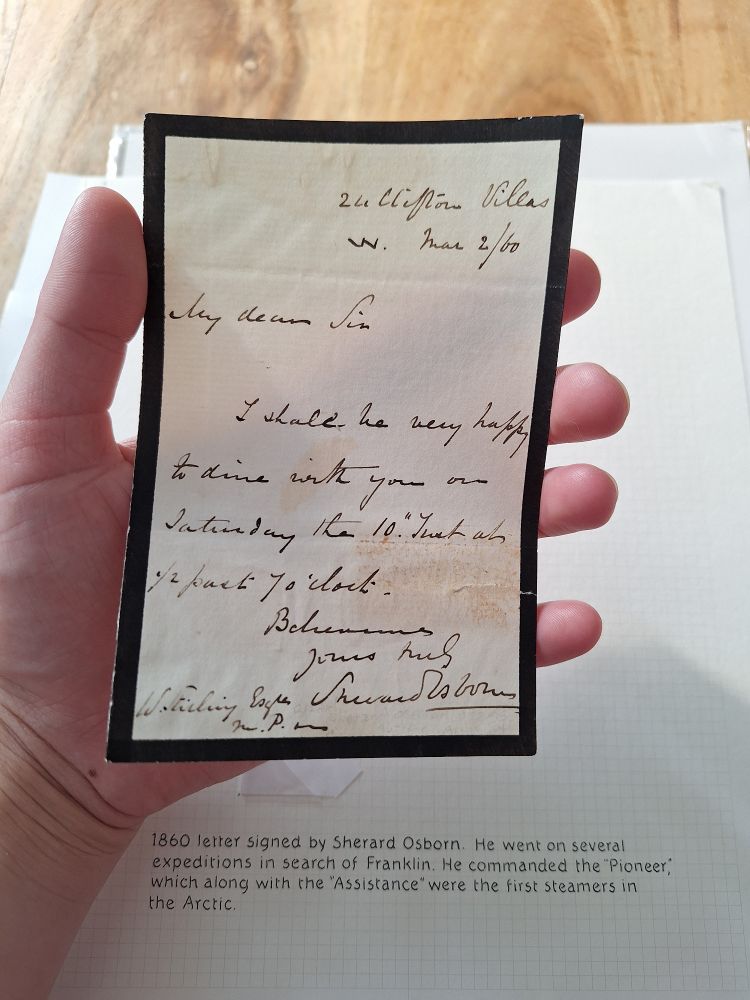 24 Clifton Villas
W. Mar 2/60
My dear Sir
I shall be very happy
to dine with you on
Saturday the 10" Inst at
1/2 past 7 o'clock.
Believe me
yours truly
Sherard Osborn
W. Esqre
M.P.
1860 letter signed by Sherard Osborn. He went on several
expeditions in search of Franklin. He commanded the "Pioneer,"
which along with the "Assistance" were the first steamers in
the Arctic.